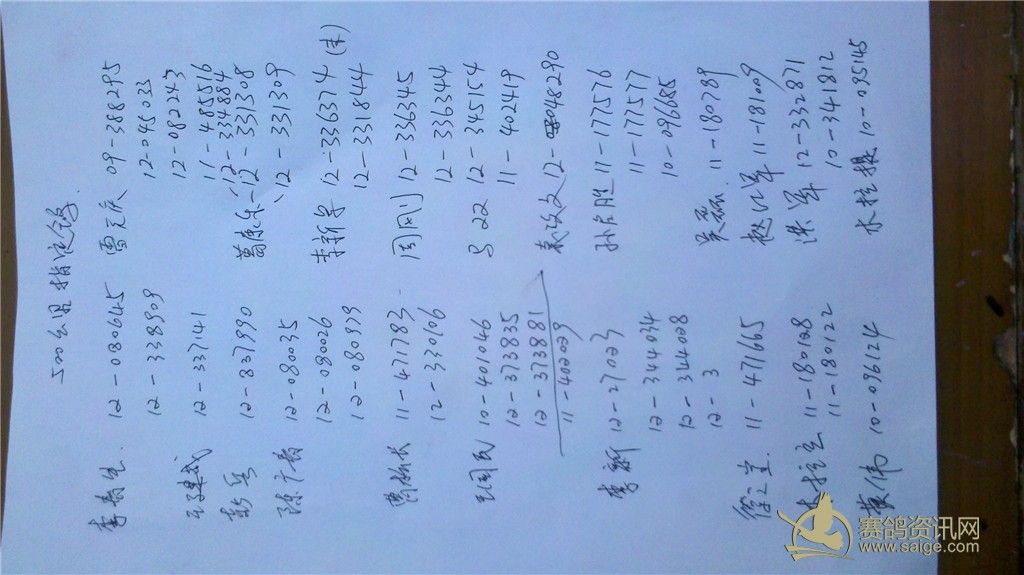 500公里指定鸽
12-080645
12-338909
12-337141
12-837990
陈广春 12-080035
12-080026
12-080999
11-471783
12-330106
王国民 10-401046
12-373835
12-373881
11-402029
李新 12-27023
12-344034
12-344028
12-3
11-471665
11-180128
11-180122
黄伟 10-096124
雷 09-388295
12-045033
12-08243
11-485516
12-334884
葛康乐 12-331308
12-331309
李新 12-336374 (未)
12-331844
周 12-336345
12-336344
822 12-345154
11-402419
12-048290
11-177576
11-177577
10-096685
吴磊 11-180789
赵 11-181009
洪军 12-332871
10-341812
10-095145
赛鸽资讯网
www.saige.com